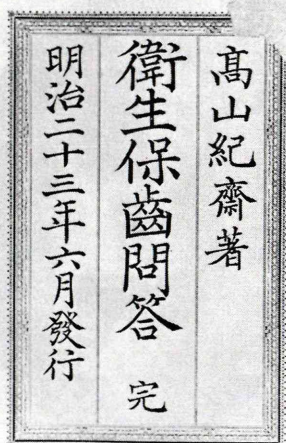 髙山紀齋著
衛生保齒問答 完
明治二十三年六月發行